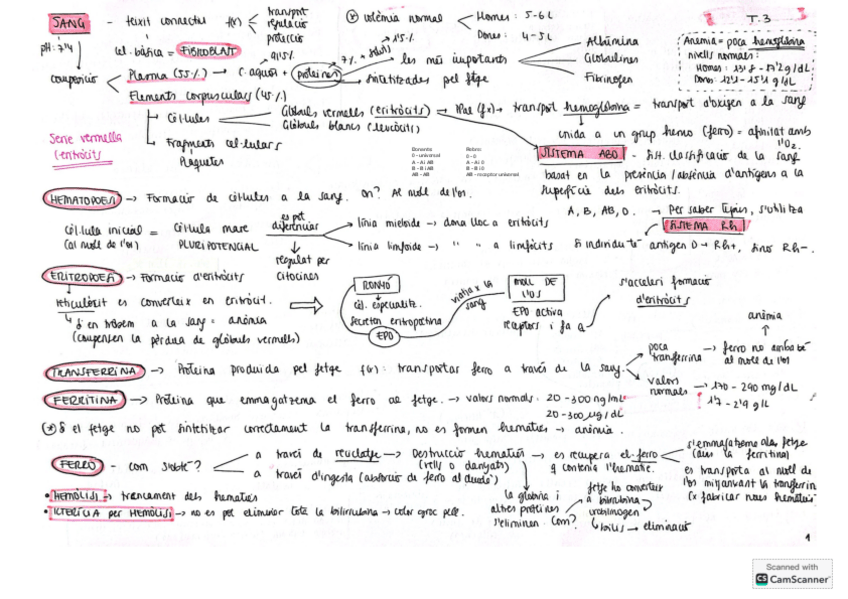 T.3
SANG - teixit connectiu f(x) transport regulació protecció
* volèmia normal Homes: 5-6L
Dones: 4-5L
pH: 7'4
cèl. bàsica = FIBROBLAST
composició Plasma (55%) → C. aquós + proteïnes
91'5%
7%
1'5%
les més importants Albúmina
Globulines
Fibrinogen
sintetitzades pel fetge
Anèmia = poca hemoglobina
nivells normals:
Homes:
Dones:
Elements corpusculars (45%)
Cèl·lules Glòbuls vermells (eritròcits) → transport hemoglobina = transport d'oxigen a la sang
Glòbuls blancs (leucòcits)
unida a un grup hemo (ferro) = afinitat amb l'O2.
Fragments cel·lulars
Plaquetes
Sèrie vermella
(eritròcits)
Donants
0 - universal
A - A i AB
B - B i AB
AB - AB
Rebre
0 - 0
A - A i 0
B - B i 0
AB - receptor universal
SISTEMA ABO - sist. classificació de la sang
basat en la presència/absència d'antígens a la
superfície dels eritròcits.
A, B, AB, O. → Per saber tipus, s'utilitza
SISTEMA Rh
Si individu té antigen D → Rh+, sinó Rh-.
HEMATOPOESI → Formació de cèl·lules a la sang. On? Al moll de l'os.
cèl·lula inicial = Cèl·lula mare es pot diferenciar línia mieloide → dona lloc a eritròcits
(al moll de l'os) PLURIPOTENCIAL línia limfoide → " " a limfòcits
regulat per
Citocines
ERITROPOESI → Formació d'eritròcits
reticulòcit es converteix en eritròcit.
si en trobem a la sang = anèmia
(compensen la pèrdua de glòbuls vermells)
RONYÓ
cèl. especialitz.
secreten eritropoetina
EPO
viatja x la sang
MOLL DE L'OS
EPO activa
receptors i fa q
s'acceleri formació
d'eritròcits
TRANSFERRINA → Proteïna produïda pel fetge f(x): transportar ferro a través de la sang.
poca transferrina → ferro no arriba bé al moll de l'os
anèmia
valors normals → 170 - 290 mg/dL
1'7 - 2'9 g/L
FERRITINA → Proteïna que emmagatzema el ferro al fetge. → valors normals: 20-300 ng/mL
20-300 µg/dL
* Si el fetge no pot sintetitzar correctament la transferrina, no es formen hematies → anèmia.
FERRO - com s'obté? a través de reciclatge → Destrucció hematies (vells o danyats) → es recupera el ferro q contenia l'hematie.
a través d'ingesta (absorció de ferro al duodè)
s'emmagatzema al fetge
(dins la ferritina)
es transporta al moll de
l'os mitjançant la transferrin
(x fabricar nous hematies)
la globina i
altres proteïnes
s'eliminen. Com?
fetge ho converteix
a bilirubina
urobilinogen
bilis → eliminació
• HEMÒLISI → trencament dels hematies
• ICTERÍCIA per HEMÒLISI → no es pot eliminar tota la bilirubina → color groc pell.
1
Scanned with
CS CamScanner